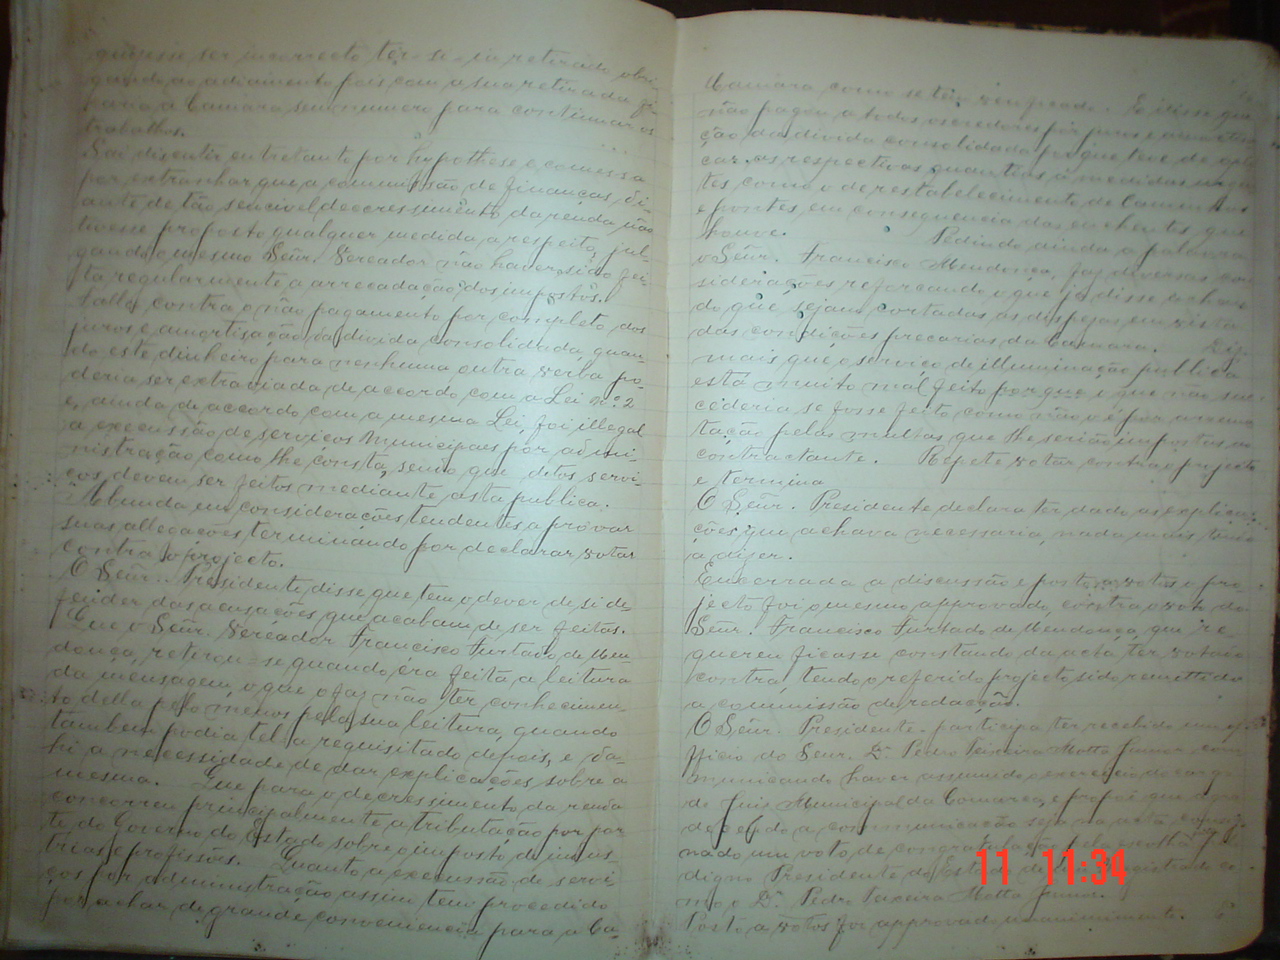 quizesse ser incorrecto ter-se retirado obri-
gando ao adiamento pois com a sua retirada fi-
cava a Camara sem numero para continuar os
trabalhos.
Vai discutir entretanto por hypothese e começa
por extranhar que a commissão de finanças di-
ante de tão sencivel decressimento da renda não
tivesse proposto qualquer medida a respeito, jul-
gando o mesmo Señr. Vereador não haver sido fei-
ta regularmente a arrecadação dos impostos.
Falla contra o não pagamento por completo dos
juros e amortisação da divida consolidada, quan-
do este dinheiro para nenhuma outra verba po-
deria ser extraviada de accordo com a Lei nº 2
e, ainda de accordo com a mesma Lei, foi illegal
a execussão de serviços Municipaes por admi-
nistração como lhe consta, sendo que ditos servi-
ços devem ser feitos mediante asta publica.
Abunda em considerações tendentes a provar
suas allegações terminando por declarar votar
contra o projecto.
O Señr. Presidente disse que tem o dever de si de-
fender das acusações que acabam de ser feitas.
Que o Señr. Vereador Francisco Furtado de Men-
donça, retirou-se quando éra feita a leitura
da mensagem, o que o faz não ter conhecimen-
to della pelo menos pela sua leitura, quando
tambem podia tel-a requisitado depois, e da-
hi a necessidade de dar explicações sobre a
mesma. Que para o decressimento da renda
concorreu principalmente a tributação por par-
te do Governo do Estado sobre o imposto de indus-
trias e profissões. Quanto a execussão de servi-
ços por administração assim tem procedido
por achar de grande conveniencia para a Ca-
Camara como se tem verificado. E disse que
não pagou a todos os credores por juros e amortisa-
ção da divida consolidada porque teve de apli-
car as respectivas quantias á medidas urgen-
tes como o de restabelecimento de Caminhos
e pontes, em consequencia das enchentes que
houve. Pedindo ainda a palavra
o Señr. Francisco Mendonça, faz diversas con-
siderações reforçando o que já disse e achan-
do que sejam cortadas as despezas em vista
das condições precarias da Camara. Diz
mais que o serviço de illuminação publica
está muito mal feito por que o que não suc-
cederia se fosse feito como não o é por arrema-
tação pelas multas que lhe serião impostas ao
contractante. Repete votar contra o projecto
e termina
O Señr. Presidente declara ter dado as explica-
ções que achava necessaria, nada mais tendo
a dizer.
Encerrada a discussão e posto a votos o pro-
jecto foi o mesmo approvado, contra o voto do
Señr. Francisco Furtado de Mendonça, que re-
quereu ficasse constando da acta ter votado
contra, tendo o referido projecto sido remettido
a commissão de redacção.
O Señr. Presidente participa ter recebido um of-
ficio do Senr. Dr. Pedro Teixeira Motta Junior com-
municando haver assumido o exercicio do cargo
de Juiz Municipal da Comarca, e propoz que
a communicação seja na acta consig-
nado um voto de congratulação pela escolha
digno Presidente do Estado magistrado co-
mo o Dr. Pedro Teixeira Motta Junior.
Posto a votos foi approvado unanimimente. E
11 11:34